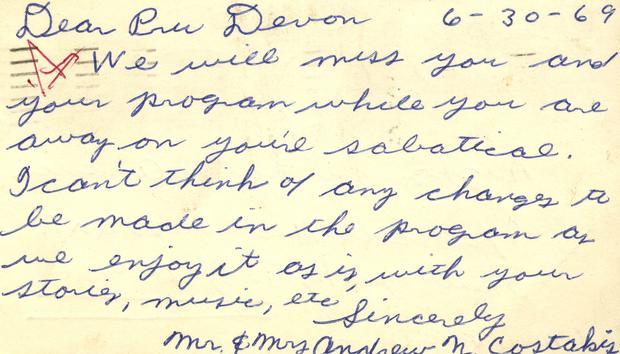 Dear Pru Devon 6-30-69
We will miss you and
your program while you are
away on you're sabatical.
I can't think of any changes to
be made in the program as
we enjoy it as is, with your
stories, music, etc.
Sincerely
Mr. & Mrs Andrew N. Costakis